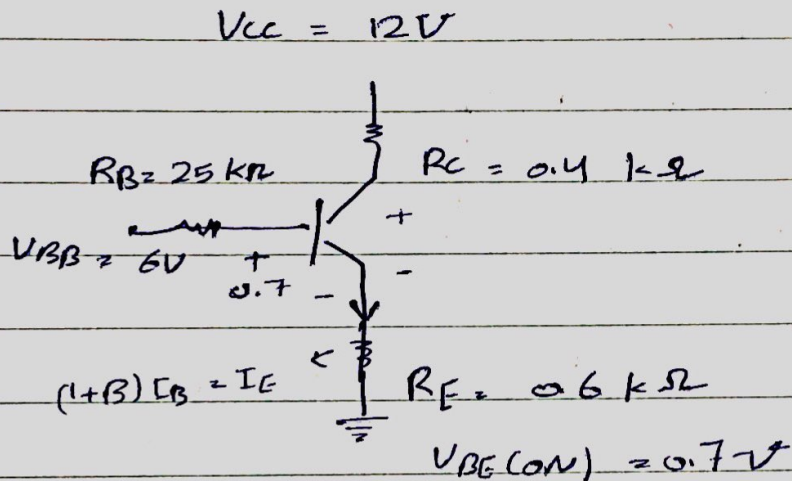 Vcc = 12V
RB = 25 kΩ
Rc = 0.4 kΩ
VBB = 6V
+
+
0.7 -
-
(1+B) IB = IE
RE = 0.6 kΩ
VBE (ON) = 0.7 V